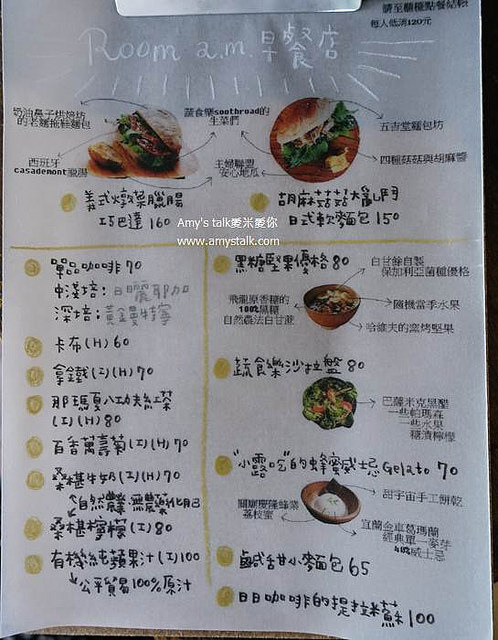 請至櫃檯點餐結帳
每人低消120元
Room a.m. 早餐店
奶油鼻子烘焙坊
的老麵拖鞋麵包
蔬食樂soothroad的
生菜們
五吉堂麵包坊
西班牙
casademont臘腸
主婦聯盟
安心地瓜
四種菇菇與胡麻醬
美式燉菜臘腸
巧巴達 160
胡麻菇菇大亂鬥
日式軟麵包 150
Amy's talk愛米愛你
www.amystalk.com
單品咖啡 70
中淺焙：日曬耶加
深焙：黃金曼特寧
卡布(H) 60
拿鐵(I)(H) 70
那瑪夏八功夫紅茶
(I)(H) 80
百香萬壽菊(I)(H) 70
桑椹牛奶(I)(H) 70
自然農業無農藥化肥
桑椹檸檬(I) 80
有機純蘋果汁(I) 100
公平貿易100%原汁
黑糖堅果優格 80
白甘餘自製
保加利亞菌種優格
飛龍原香糖的
100%黑糖
自然農法白甘蔗
隨機當季水果
哈維夫的窯烤堅果
蔬食樂沙拉盤 80
巴薩米克黑醋
一些帕瑪森
一些水果
糖漬檸檬
"小露吃"的蜂蜜威士忌 Gelato 70
關廟慶隆蜂業
荔枝蜜
甜宇宙手工餅乾
宜蘭金車葛瑪蘭
經典單一麥芽
40度威士忌
鹹甜小麵包 65
日日咖啡的提拉米蘇 100